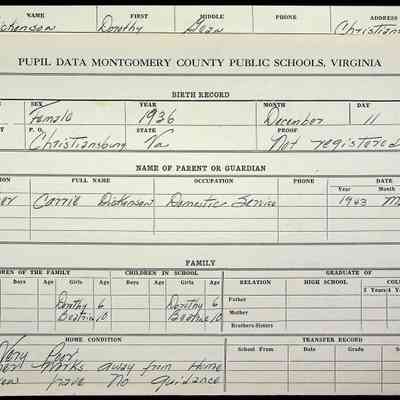 NAME FIRST MIDDLE PHONE ADDRESS
Dickenson Dorothy Jean Christians
PUPIL DATA MONTGOMERY COUNTY PUBLIC SCHOOLS, VIRGINIA
BIRTH RECORD
SEX YEAR MONTH DAY
Female 1936 December 11
P. O. STATE PROOF
Christiansburg Va Not registered
NAME OF PARENT OR GUARDIAN
ION FULL NAME OCCUPATION PHONE DATE
Year Month
er Carrie Dickenson Domestic Service 1943 M
FAMILY
REN OF THE FAMILY CHILDREN IN SCHOOL GRADUATE OF
Boys Age Girls Age Boys Age Girls Age RELATION HIGH SCHOOL COL
2 Years 4 Yea
Dorothy 6 Dorothy 6 Father
Beatrice 10 Beatrice 10 Mother
Brothers-Sisters
HOME CONDITION TRANSFER RECORD
Very Poor School From Date Grade S
er Works away from Home
ren have No guidance